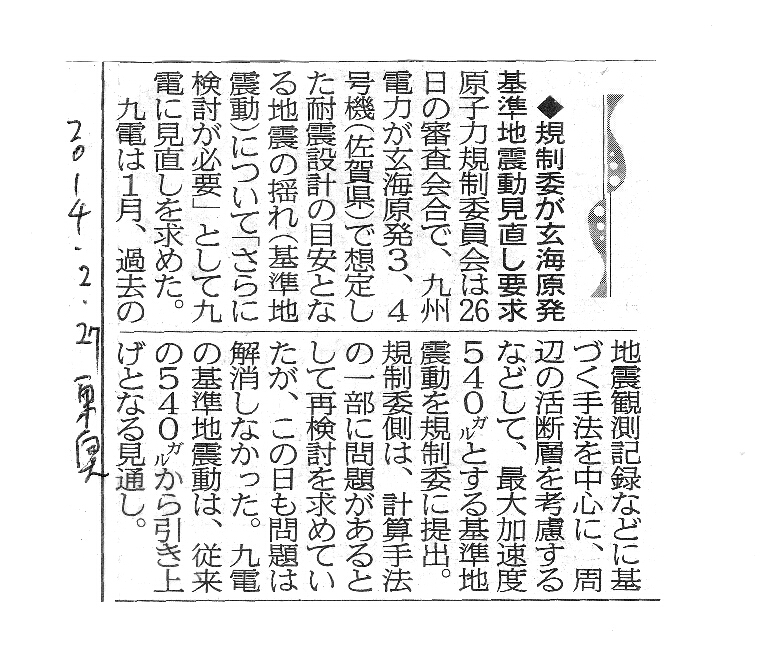 ◆規制委が玄海原発
基準地震動見直し要求
原子力規制委員会は26
日の審査会合で、九州
電力が玄海原発3、4
号機(佐賀県)で想定し
た耐震設計の目安とな
る地震の揺れ(基準地
震動)について「さらに
検討が必要」として九
電に見直しを求めた。
九電は1月、過去の
地震観測記録などに基
づく手法を中心に、周
辺の活断層を考慮する
などして、最大加速度
540ガルとする基準地
震動を規制委に提出。
規制委側は、計算手法
の一部に問題があると
して再検討を求めてい
たが、この日も問題は
解消しなかった。九電
の基準地震動は、従来
の540ガルから引き上
げとなる見通し。
2014.2.27